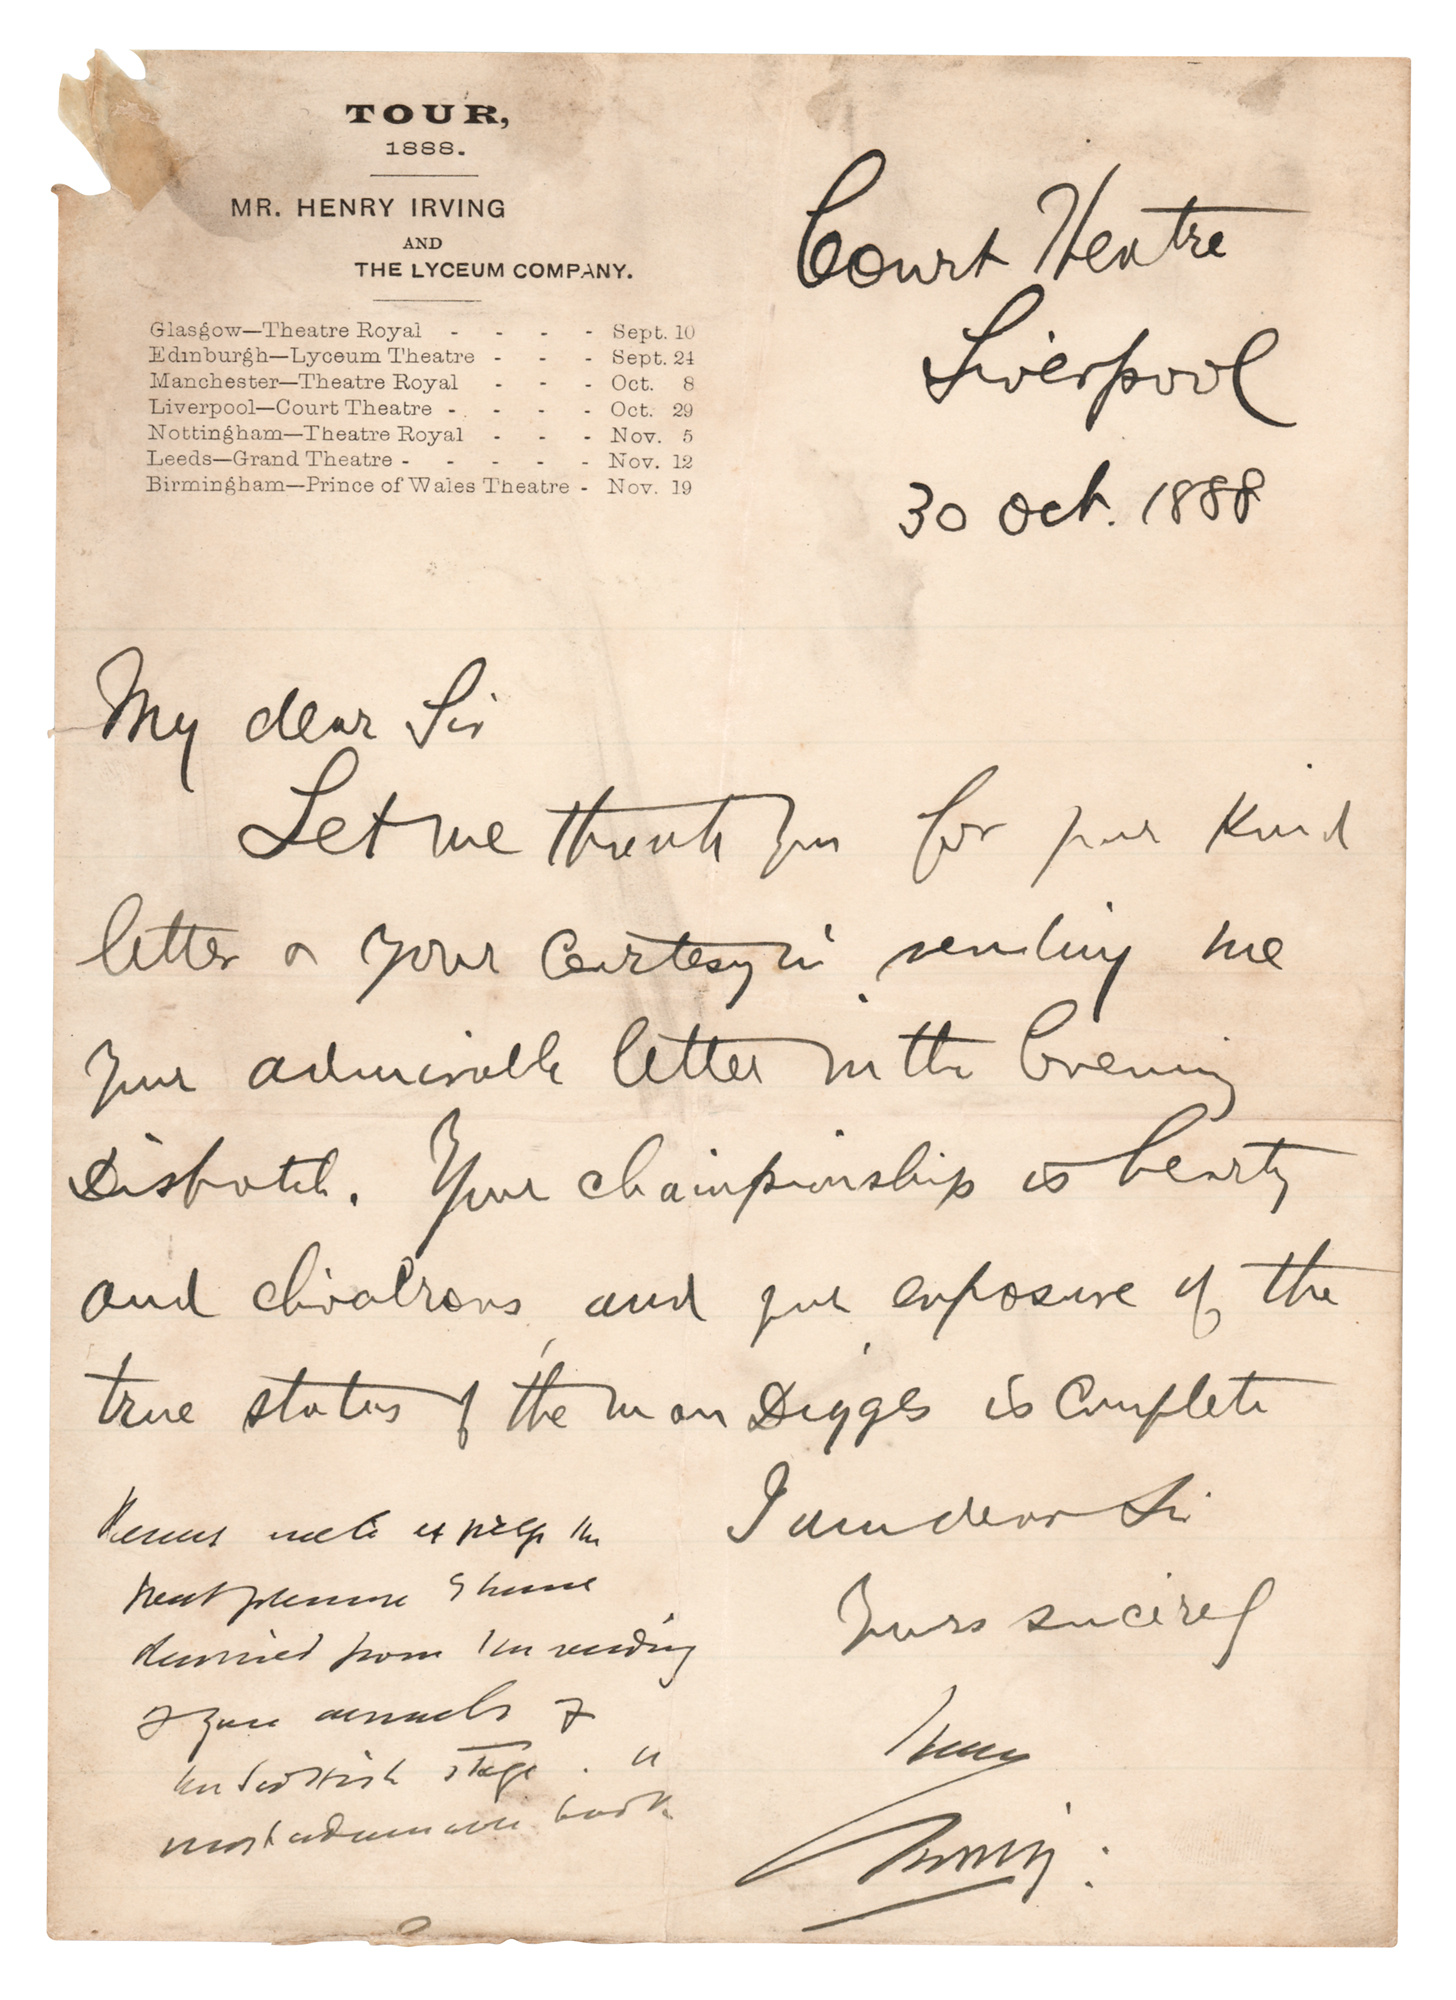 TOUR,
1888.
MR. HENRY IRVING
AND
THE LYCEUM COMPANY.
Glasgow—Theatre Royal - - - - Sept. 10
Edinburgh—Lyceum Theatre - - - Sept. 24
Manchester—Theatre Royal - - - Oct. 8
Liverpool—Court Theatre - - - - Oct. 29
Nottingham—Theatre Royal - - - Nov. 5
Leeds—Grand Theatre - - - - - Nov. 12
Birmingham—Prince of Wales Theatre - Nov. 19
Court Theatre
Liverpool
30 Oct. 1888
My dear Sir
Let me thank you for your kind
letter & your courtesy in sending me
your admirable letter in the Evening
Dispatch. Your championship is hearty
and chivalrous, and your exposure of the
true status of the man Digges is complete
I am dear Sir
Yours sincerely
Henry
Irving
great pleasure I have
derived from the reading
of your annals of
the Scottish stage. a
most book